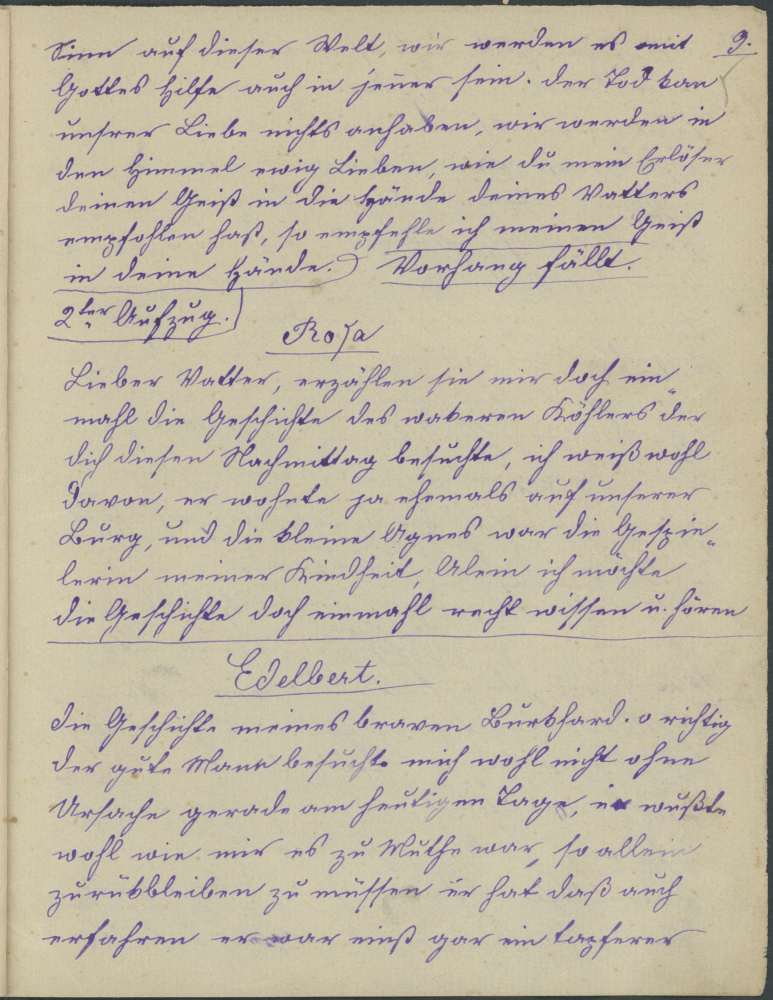 Sinn auf dieser Welt, wir werden es mit 9.
Gottes Hilfe auch in jener sein. der Tod kan
unsrer Liebe nichts anhaben, wir werden in
den Himmel ewig Lieben, wie du mein Erlöser
deinen Geist in die Hände deines Vatters
empfohlen hast, so empfehle ich meinen Geist
in deine Hände.) Vorhang fällt.
2ter Aufzug.)
Rosa
Lieber Vatter, erzählen sie mir doch ein„
mahl die Geschichte des wakeren Köhlers der
dich diesen Nachmittag besuchte, ich weiß wohl
davon, er wohnte ja ehemals auf unserer
Burg, und die kleine Agnes war die Gespie„
lerin meiner Kindheit, Alein ich möchte
die Geschichte doch einmahl recht wissen u. hören
Edelbert.
Die Geschichte meines braven Burkhard. o richtig
der gute Mann besuchte mich wohl nicht ohne
Ursache gerade am heutigen Tage, er wußte
wohl wie mir es zu Muthe war, so allein
zurükbleiben zu müssen er hat daß auch
erfahren er war einst gar ein tapferer